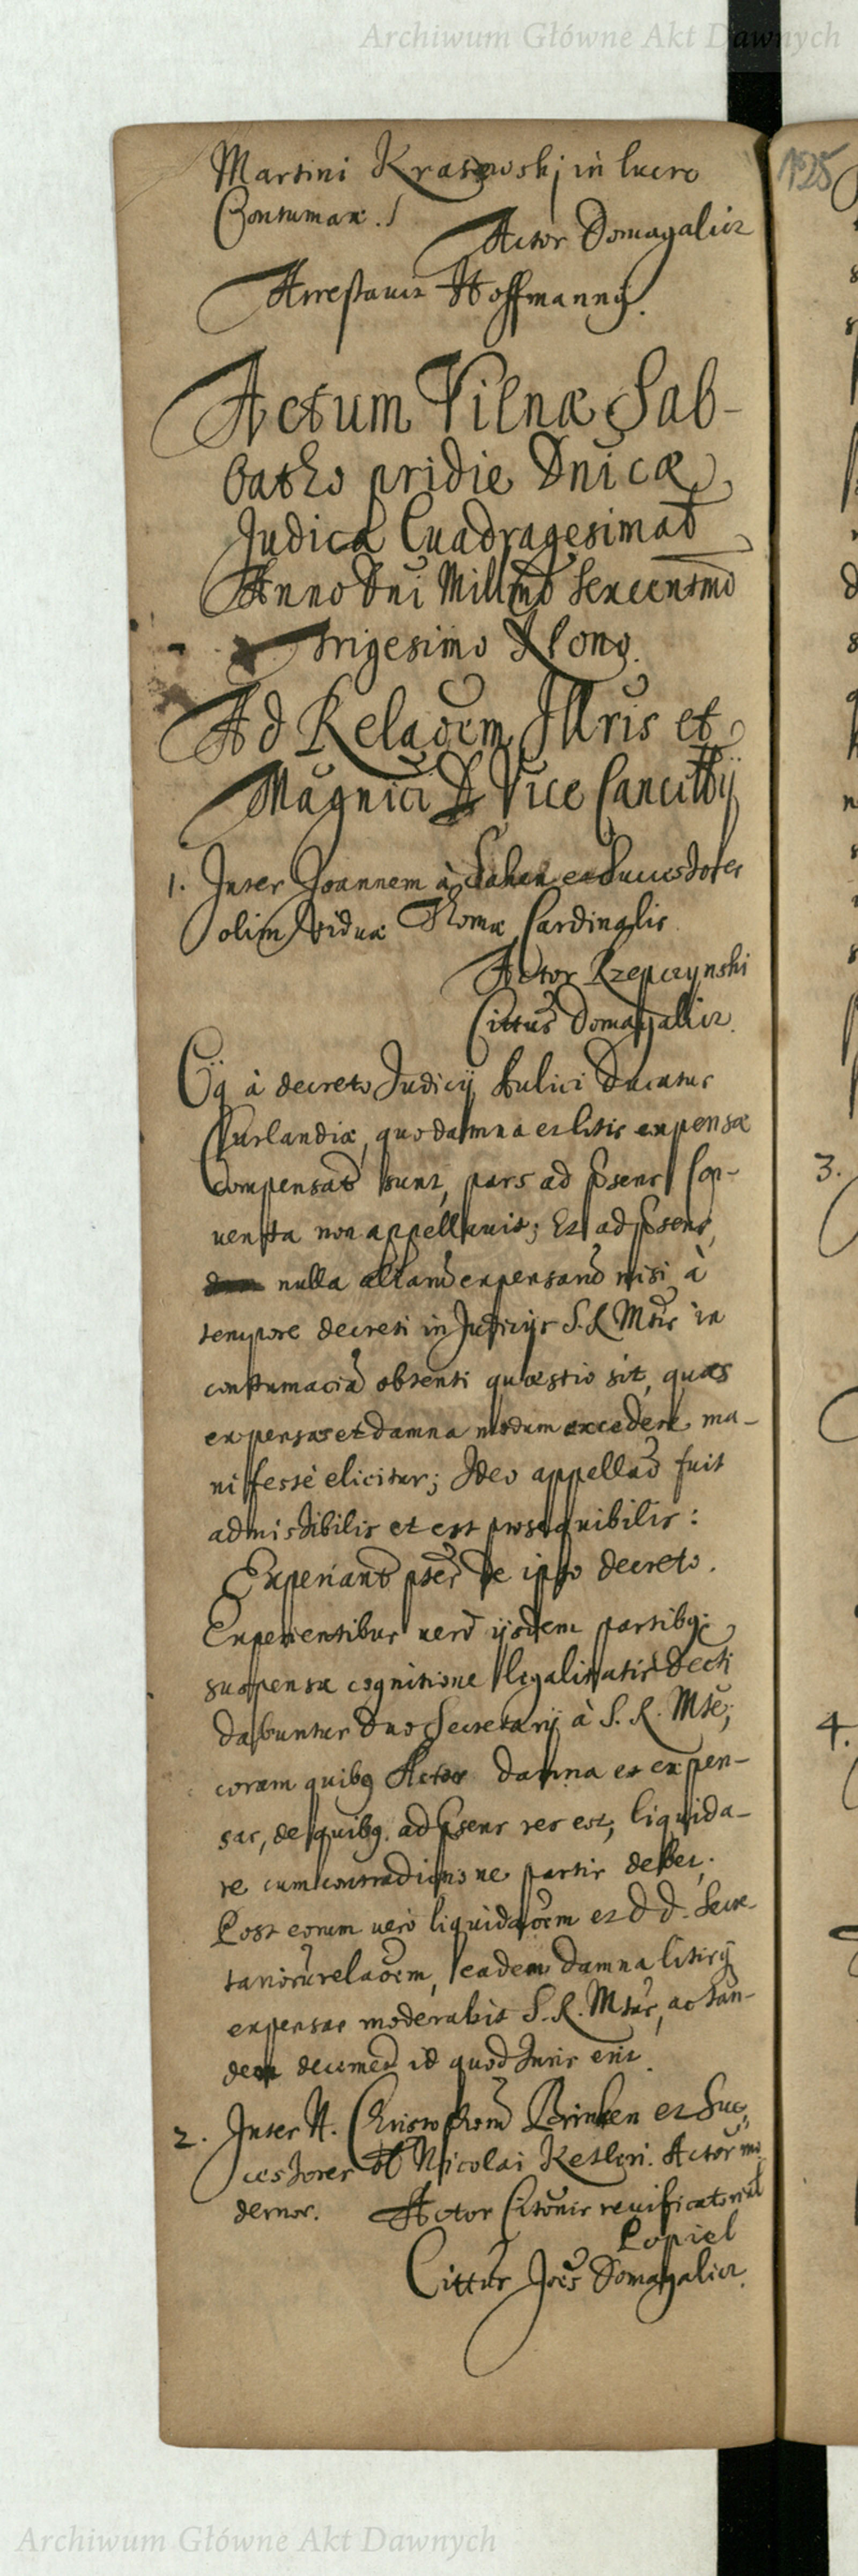 Archiwum Główne Akt Dawnych
125
Martini Krasowskj in lucro
Contumax.
Actor Domagalicz
Arrestavit Hoffmanny.
Actum Vilnæ Sab-
batho pridie Dnicæ
Judica Quadragesimat
Anno Dni Millmo Sexcentmo
trigesimo Nono.
Ad Relaōem Jllris et
Magnici D Vice Cancllrij
1. Inter Joannem à et Successores
olim Viduæ Thomæ Cardinalis
Actor Rzepczynski
Cittus Domagallicz.
Cu à decreto Judicij Aulici Ducatus
Curlandiæ, quo damna et litis expensæ
compensatæ sunt, pars ad psens Con-
venta non appellavit; Et ad psens,
nulla aliarū expensarū nisi à
tempore decreti in Judicijs S. R. Mtis in
contumaciā obtenti quæstio sit, quas
expensas et damna modum excedere ma-
nifestè elicitur; Ideo appellaō fuit
admissibilis et est prosequibilis:
Experiant ptes de ipso decreto.
Experientibus verò ijsdem partibq
suspensa cognitione legalitatis decti
dabuntur duo Secretarij à S. R. Mte,
coram quibq Actor damna et expen-
sas, de quibq ad psens res est, liquida-
re cum contradictione partis debet.
Post eorum verò liquidaōem et D D. Secre-
tariorū relaōem, eadem damna litisq
expensas moderabit S. R. Mtas, ac tan-
dem decernet id quod Iuris erit.
2. Inter N. Christophorū Brinken et Suc-
cessores ol Nicolai Ketleri. Actor mo
dernos. Actor Citōnis reuificatoriæ
Popiel
Cittus Joēs Domagalicz.
3.
4.
Archiwum Główne Akt Dawnych